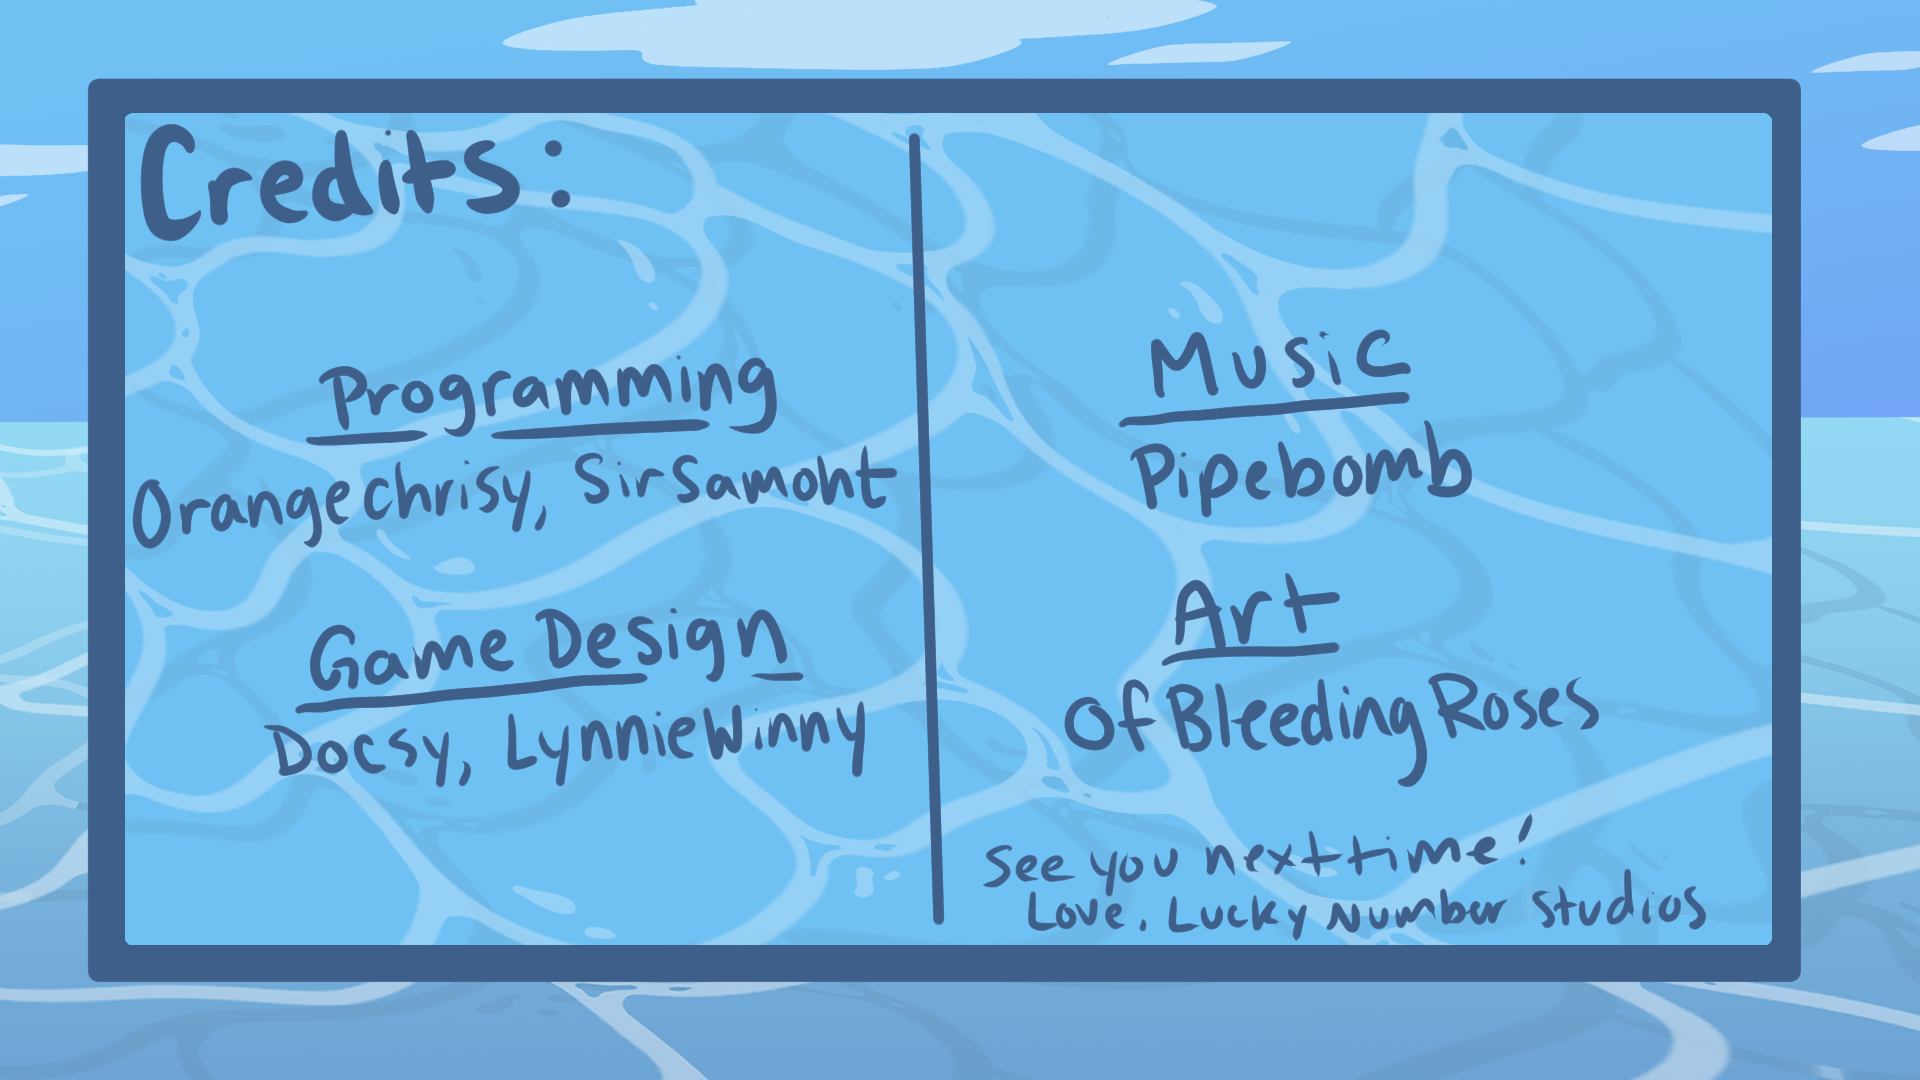 Credits:
Programming
Orangechrisy, SirSamoht
Game Design
Docsy, LynnieWinny
Music
Pipebomb
Art
OfBleedingRoses
See you next time!
Love, Lucky Number Studios